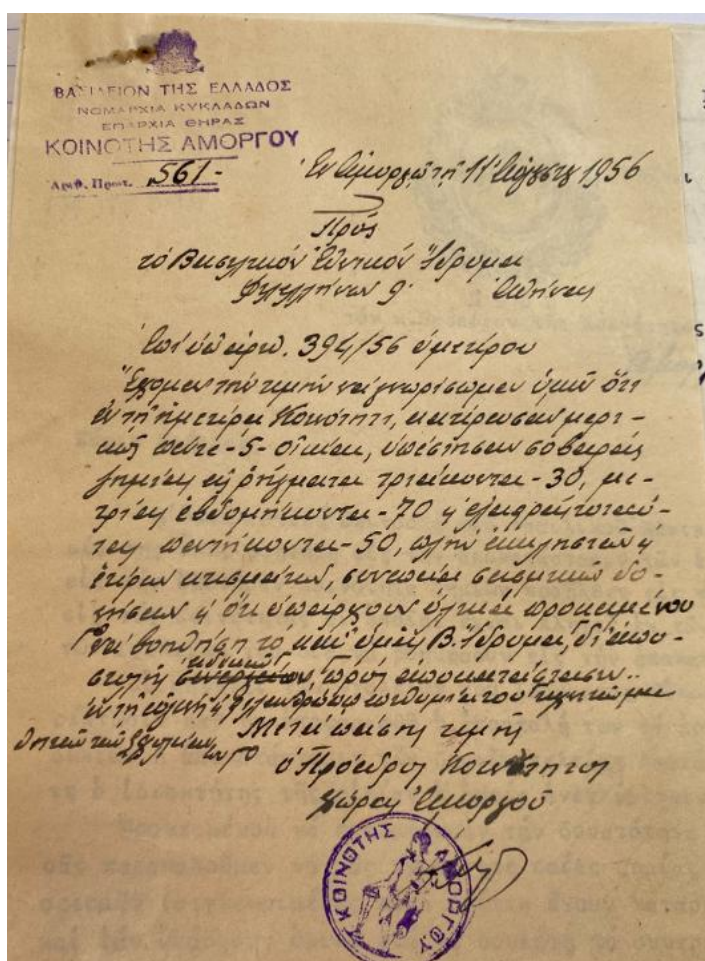 ΒΑΣΙΛΕΙΟΝ ΤΗΣ ΕΛΛΑΔΟΣ
ΝΟΜΑΡΧΙΑ ΚΥΚΛΑΔΩΝ
ΕΠΑΡΧΙΑ ΘΗΡΑΣ
ΚΟΙΝΟΤΗΣ ΑΜΟΡΓΟΥ
Αριθ. Πρωτ. 561-
Ἐν Ἀμοργῷ τῇ 11 Αὐγούστου 1956
Πρός
τό Βασιλικόν Ἐθνικόν Ἵδρυμα
Φιλελλήνων 9 Ἀθήνας
Ἐπί ὑπ' ἀριθ. 394/56 ὑμετέρου
Ἔχομεν τήν τιμήν νά γνωρίσωμεν ὑμῖν ὅτι
ἐν τῇ ἡμετέρᾳ Κοινότητι, κατέρρευσαν μερι-
κῶς πέντε -5- οἰκίαι, ὑπέστησαν σοβαράς
ζημίας εἰς ρήγματα τριάκοντα -30, με-
τρίας ἑβδομήκοντα -70 ἐλαφράς τοιαύ-
τας πεντήκοντα -50, πλήν ἐκκλησιῶν
ἑτέρων κτισμάτων, συνεπείᾳ σεισμικῶν δο-
νήσεων ὅτι ὑπάρχουν ὑλικά προκειμένου
νά βοηθήσῃ τό καθ' ὑμᾶς Β. Ἵδρυμα, δι' ἀπο-
στολῆς συνεργείων, πρός ἀποκατάστασιν
Μετά πάσης τιμῆς
ὁ Πρόεδρος Κοινότητος
Χώρας Ἀμοργοῦ
ΚΟΙΝΟΤΗΣ ΑΜΟΡΓΟΥ